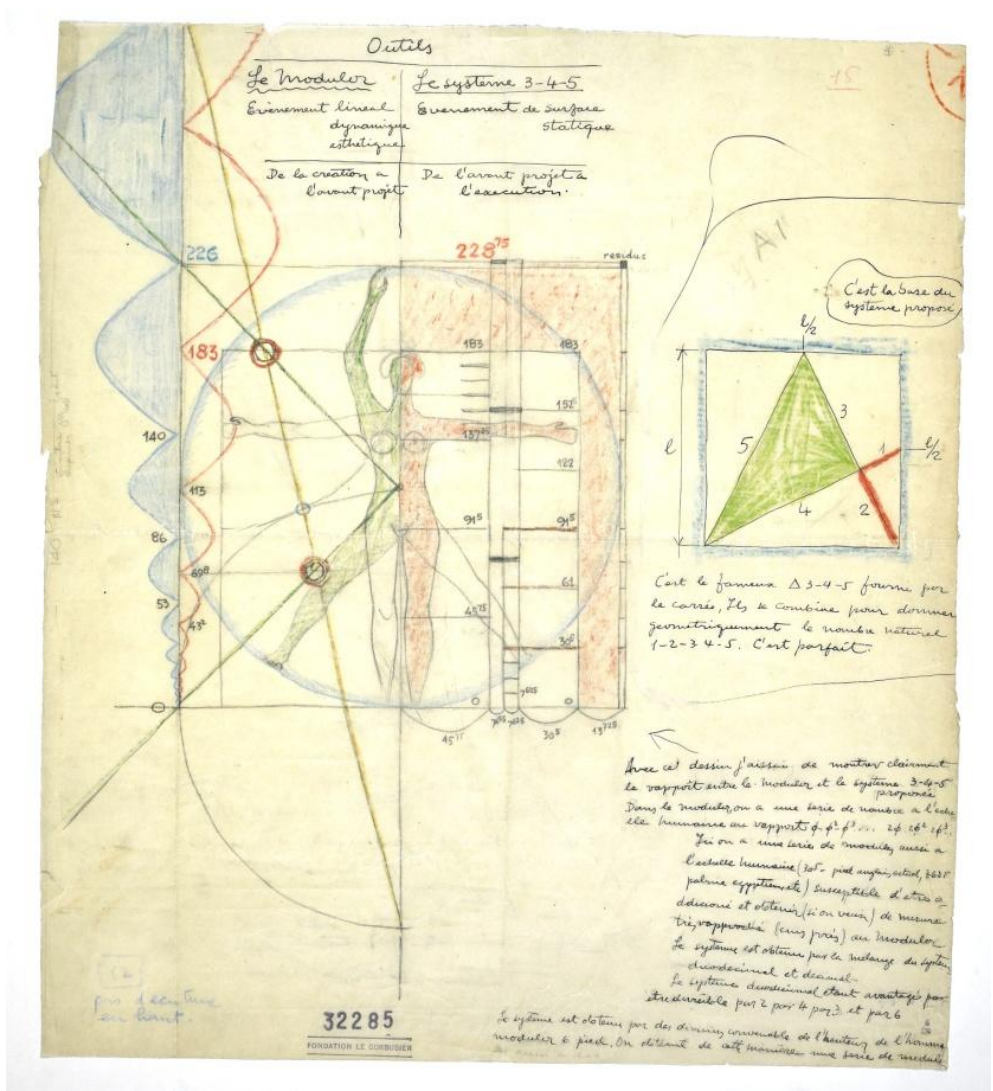 Outils
Le Modulor
Evènement lineal
dynamique
esthetique
De la création a
l'avant projet
Le systeme 3-4-5
Evenement de surface
statique
De l'avant projet a
l'execution.
15
A11
226
183
140
113
86
69⁸
53
43²
0
228⁷⁵
residus
183
183
152⁵
137²⁵
122
91⁵
91⁵
61
45⁷⁵
30⁵
7⁶²⁵
0
0
45⁷⁵
7⁶²⁵
7⁶²⁵
30⁵
13⁷²⁵
C'est la base du
systeme proposé
l/2
l
5
3
4
1
2
l/2
C'est le fameux Δ 3-4-5 fourni par
le carrés, Ils se combine pour donner
geometriquement le nombre naturel
1-2-3 4-5. C'est parfait.
Avec ce dessin j'aissai de montrer clairment
le rapport entre le modulor et le système 3-4-5
proposée
Dans le modulor, on a une serie de nombre a l'eche
elle humaine au rapport φ φ² φ³ ... 2φ 2φ² 2φ³..
Ici on a une series de modules aussi a
l'echelle humaine (30⁵ pied anglais, actuel,
palme egyptien, etc) susceptible d'etre a
ddicioné et obtenir (si on veux) de mesure
très rapprochée (cms près) au Modulor
Le systeme est obtenu par la melange du system
duodecimal et decimal.
Le systeme duodecimal etant avantagé par
etre divisible par 2 par 4 par 3 et par 6
Le sytème est obtenu par des division convenable de l'hauteur de l'homme
modulor 6 pied. On obtient de cette manière une serie de module
en haut.
32285
FONDATION LE CORBUSIER